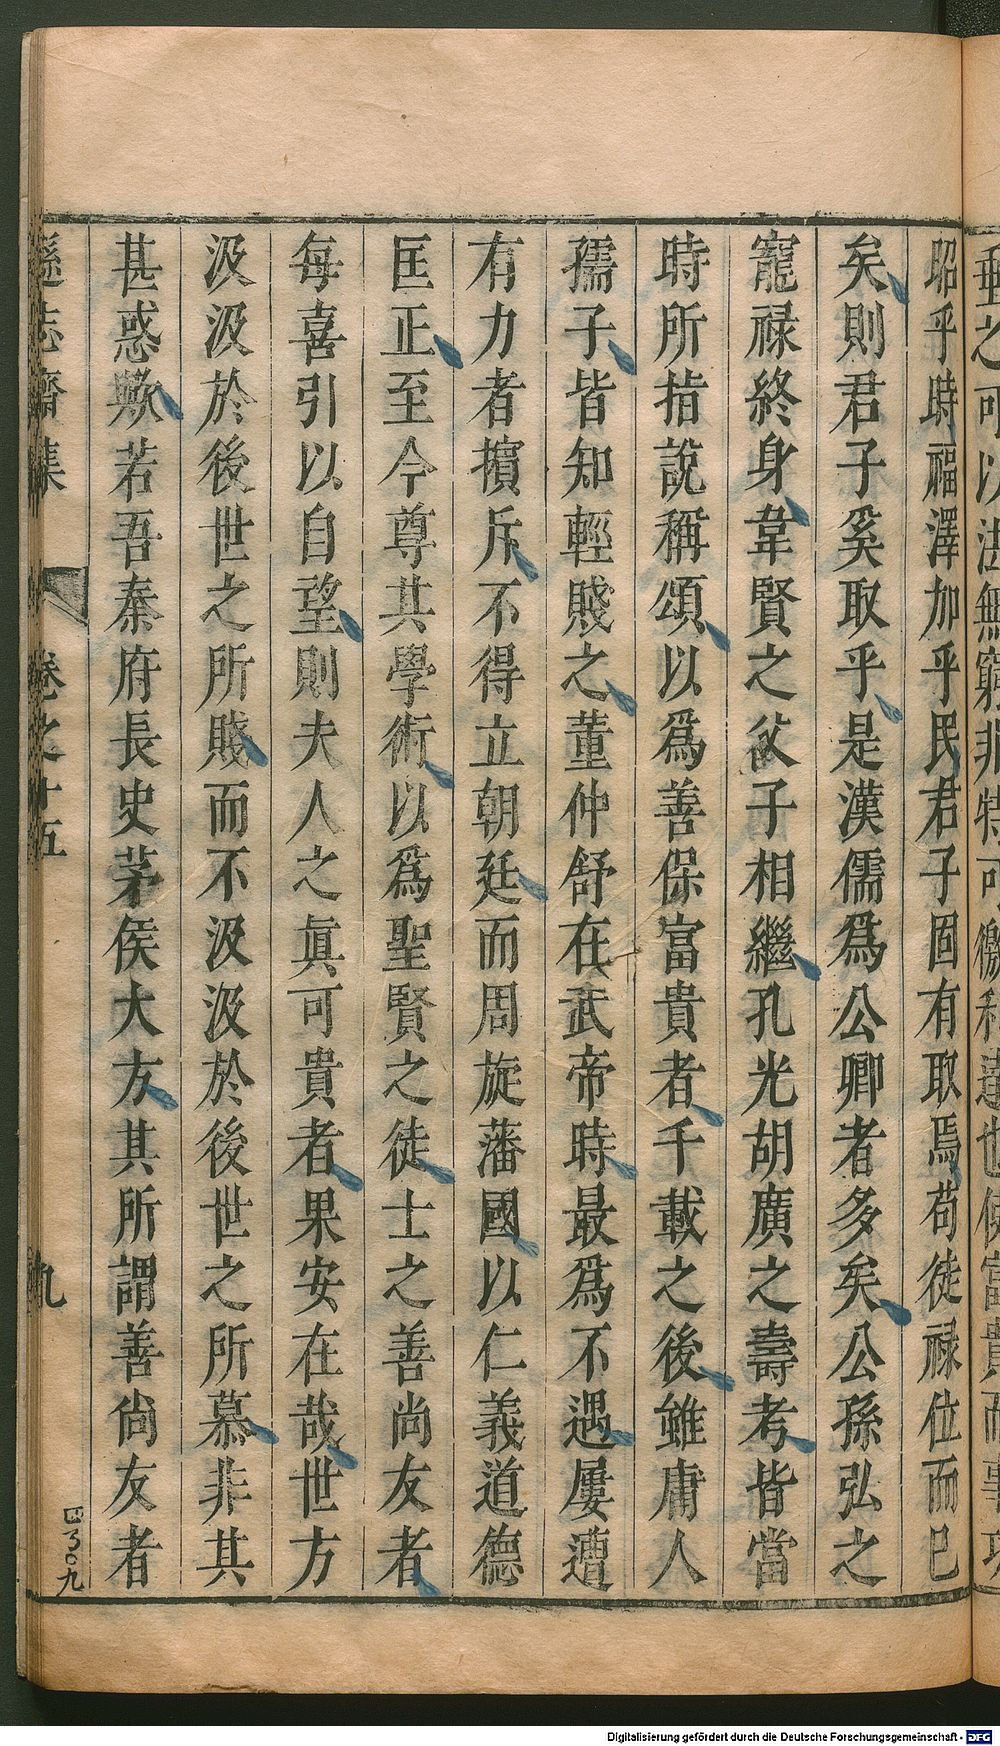 昭乎時福澤加乎民君子固有取焉苟徒祿位而已
矣則君子奚取乎是漢儒爲公卿者多矣公孫弘之
寵祿終身韋賢之父子相繼孔光胡廣之壽考皆當
時所指說稱頌以爲善保富貴者千載之後雖庸人
孺子皆知輕賤之董仲舒在武帝時最爲不遇屢遭
有力者擯斥不得立朝廷而周旋藩國以仁義道德
匡正至今尊其學術以爲聖賢之徒士之善尚友者
每喜引以自望則夫人之眞可貴者果安在哉世方
汲汲於後世之所賤而不汲汲於後世之所慕非其
甚惑歟若吾秦府長史茅侯大方其所謂善尚友者
遜志齋集 卷之十五 九
Digitalisierung gefördert durch die Deutsche Forschungsgemeinschaft - DFG